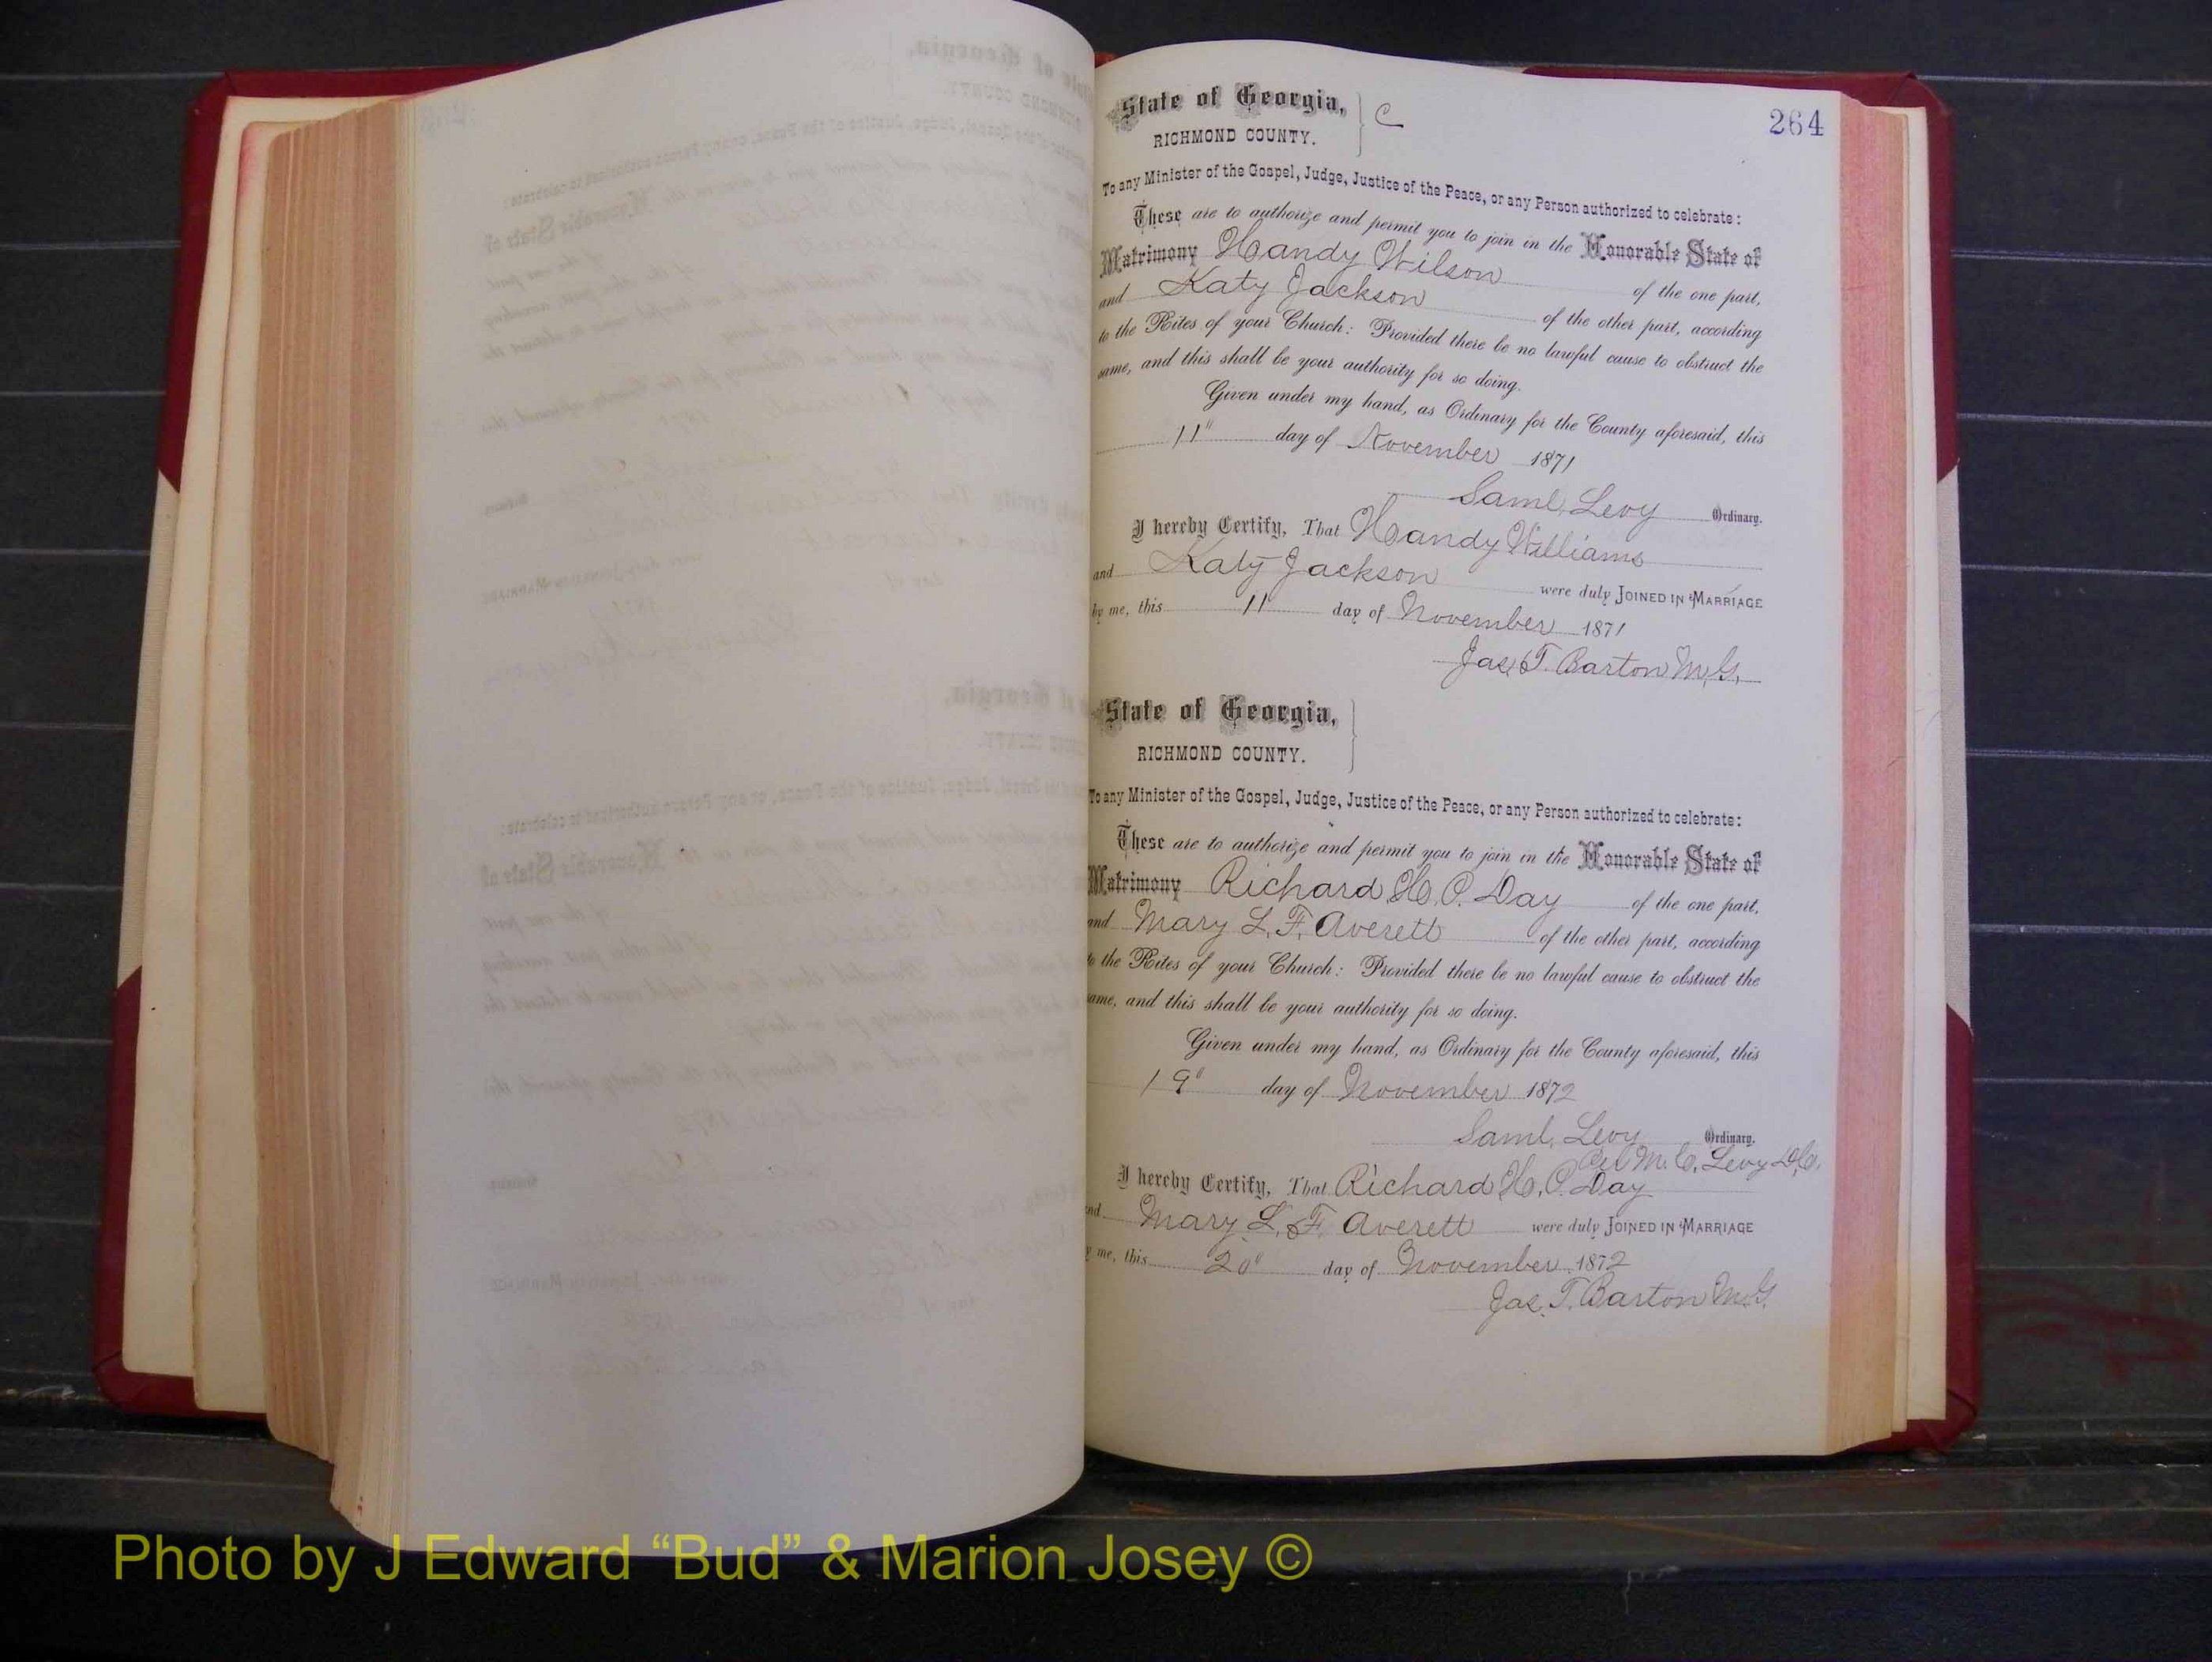 264
State of Georgia, C
RICHMOND COUNTY.
To any Minister of the Gospel, Judge, Justice of the Peace, or any Person authorized to celebrate:
These are to authorize and permit you to join in the Honorable State of
Matrimony Handy Wilson of the one part,
and Katy Jackson of the other part, according
to the Rites of your Church: Provided there be no lawful cause to obstruct the
same, and this shall be your authority for so doing.
Given under my hand, as Ordinary for the County aforesaid, this
11" day of November 1871
Saml. Levy Ordinary.
I hereby Certify, That Handy Williams
and Katy Jackson were duly JOINED IN MARRIAGE
by me, this 11 day of November 1871
Jas. T. Barton M.G.
State of Georgia,
RICHMOND COUNTY.
To any Minister of the Gospel, Judge, Justice of the Peace, or any Person authorized to celebrate:
These are to authorize and permit you to join in the Honorable State of
Matrimony Richard H. P. Day of the one part,
and Mary L. F. Averett of the other part, according
to the Rites of your Church: Provided there be no lawful cause to obstruct the
same, and this shall be your authority for so doing.
Given under my hand, as Ordinary for the County aforesaid, this
19" day of November 1872
Saml. Levy Ordinary.
Per M. C. Levy D.C.
I hereby Certify, That Richard H. P. Day
and Mary L. F. Averett were duly JOINED IN MARRIAGE
by me, this 20" day of November 1872
Jas. T. Barton M.G.
Photo by J Edward “Bud” & Marion Josey ©